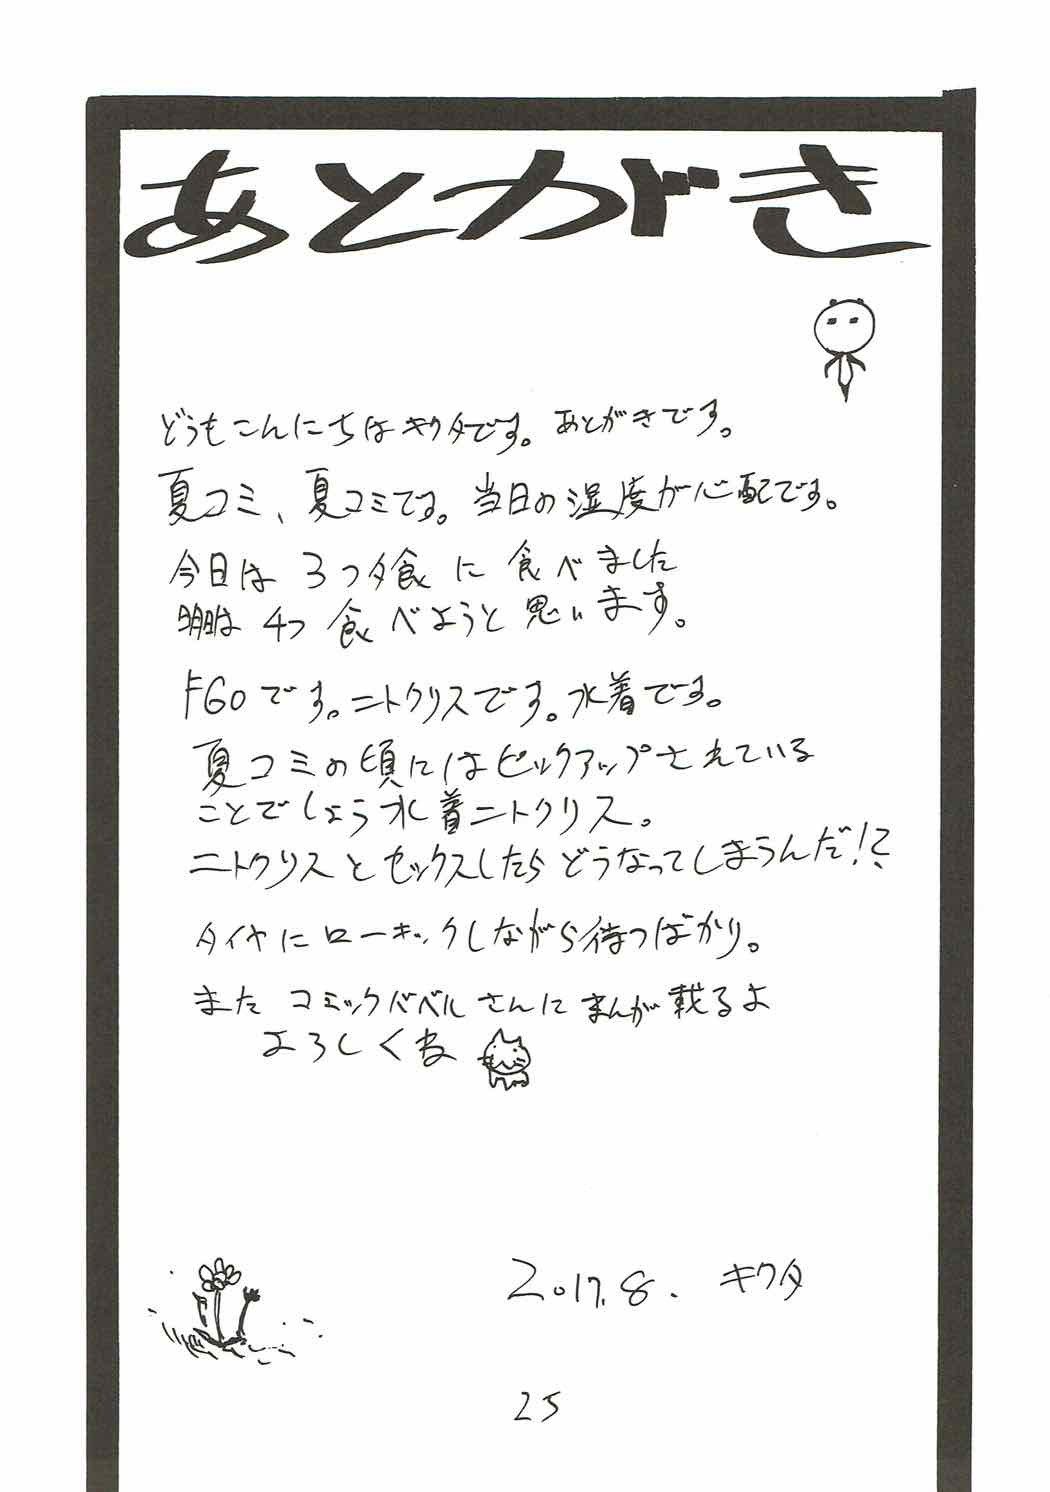 あとがき
どうもこんにちはキクタです。あとがきです。
夏コミ、夏コミです。当日の湿度が心配です。
今日は 3つ夕食に 食べました
明日は 4つ 食べようと思います。
FGOです。ニトクリスです。水着です。
夏コミの頃にはピックアップされている
ことでしょう水着ニトクリス。
ニトクリスとセックスしたらどうなってしまうんだ!?
タイヤにローキックしながら待つばかり。
また コミックバベルさんに まんが載るよ
よろしくね
2017.8. キクタ
25